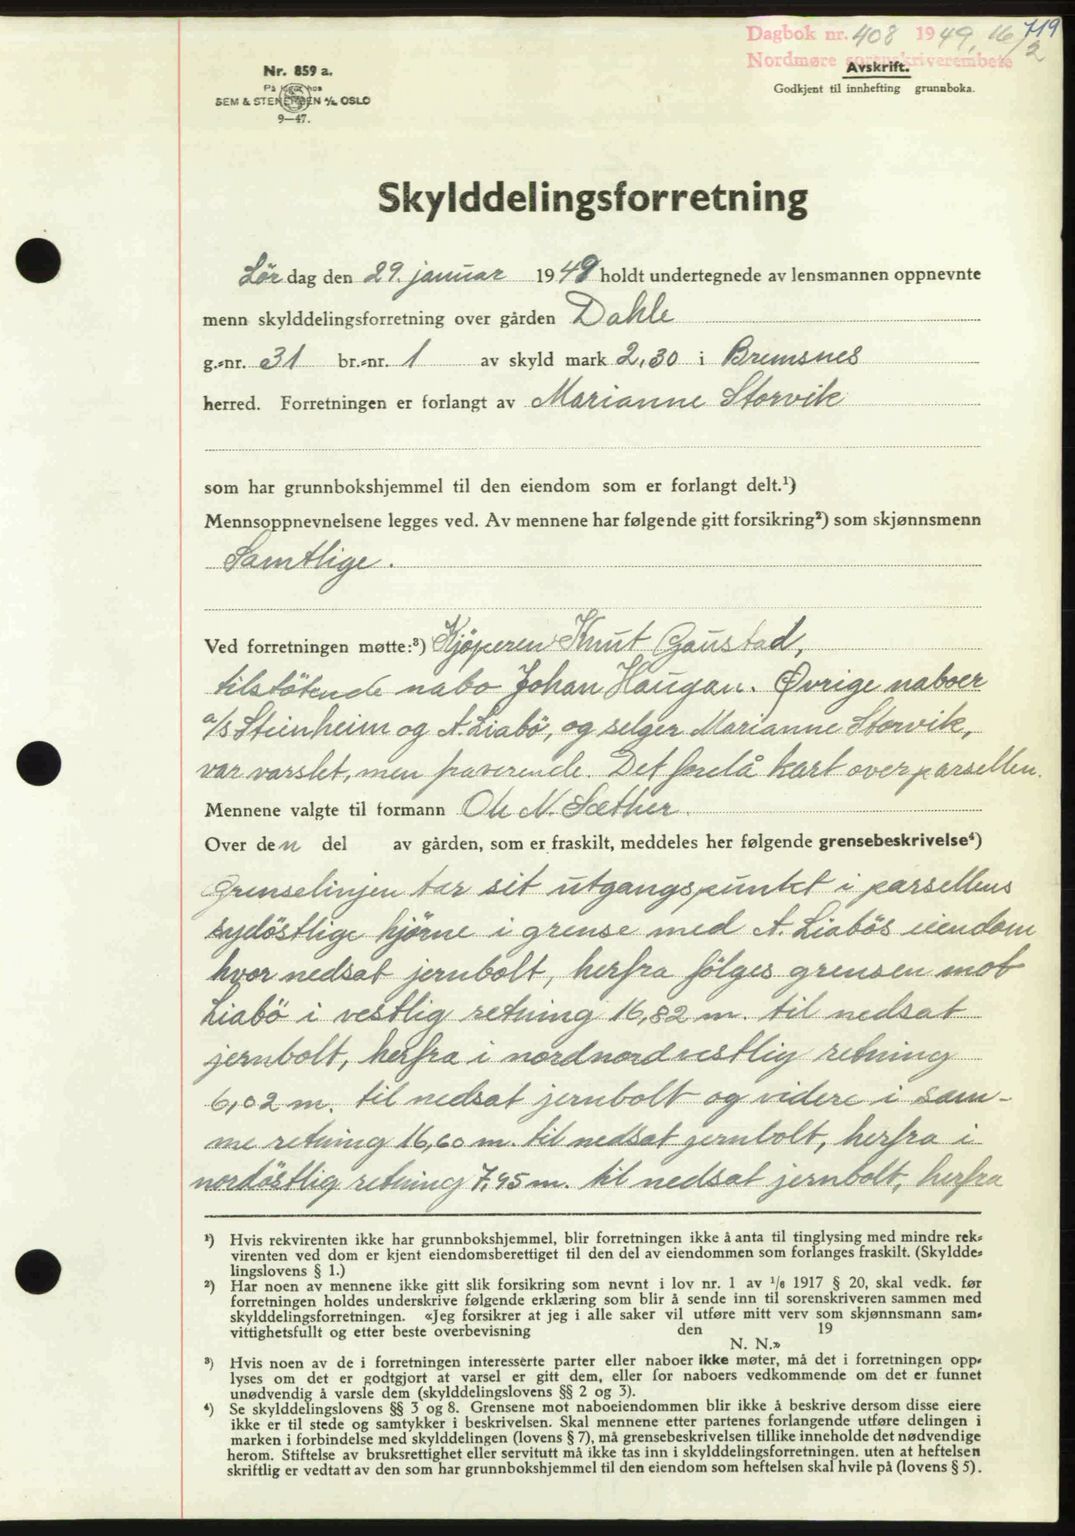 719
Dagbok nr. 408 1949, 16/2
Nordmøre sorenskriverembete
Avskrift.
Godkjent til innhefting grunnboka.
Nr. 859 a.
På lager hos
SEM & STENERSEN A/S OSLO
9—47.
Skylddelingsforretning
Lördag den 29. januar 1949 holdt undertegnede av lensmannen oppnevnte
menn skylddelingsforretning over gården Dahle
g.-nr. 31 br.-nr. 1 av skyld mark 2,30 i Bremsnes
herred. Forretningen er forlangt av Marianne Storvik
som har grunnbokshjemmel til den eiendom som er forlangt delt.¹)
Mennsoppnevnelsene legges ved. Av mennene har følgende gitt forsikring²) som skjønnsmenn
Samtlige.
Ved forretningen møtte:³) Kjöperen Knut Gaustad,
tilstötende nabo Johan Haugan. Øvrige naboer
a/s Steinheim og A. Liabö, og selger Marianne Storvik,
var varslet, men fraverende. Det forelå kart over parsellen.
Mennene valgte til formann Ole N. Sæther.
Over den del av gården, som er fraskilt, meddeles her følgende grensebeskrivelse⁴)
Grenselinjen tar sit utgangspunkt i parsellens
sydöstlige hjørne i grense med A. Liabös eiendom
hvor nedsat jernbolt, herfra fölges grensen mot
Liabö i vestlig retning 16,82 m. til nedsat
jernbolt, herfra i nordnordvestlig retning
6,02 m. til nedsat jernbolt og videre i sam-
me retning 16,60 m. til nedsat jernbolt, herfra i
nordöstlig retning 7,95 m. til nedsat jernbolt, herfra
¹) Hvis rekvirenten ikke har grunnbokshjemmel, blir forretningen ikke å anta til tinglysing med mindre rek-
virenten ved dom er kjent eiendomsberettiget til den del av eiendommen som forlanges fraskilt. (Skyldde-
lingslovens § 1.)
²) Har noen av mennene ikke gitt slik forsikring som nevnt i lov nr. 1 av 1/6 1917 § 20, skal vedk. før
forretningen holdes underskrive følgende erklæring som blir å sende inn til sorenskriveren sammen med
skylddelingsforretningen. «Jeg forsikrer at jeg i alle saker vil utføre mitt verv som skjønnsmann sam-
vittighetsfullt og etter beste overbevisning den 19
N. N.»
³) Hvis noen av de i forretningen interesserte parter eller naboer ikke møter, må det i forretningen opp-
lyses om det er godtgjort at varsel er gitt dem, eller for naboers vedkommende om det er funnet
unødvendig å varsle dem (skylddelingslovens §§ 2 og 3).
⁴) Se skylddelingslovens §§ 3 og 8. Grensene mot naboeiendommen blir ikke å beskrive dersom disse eiere
ikke er til stede og samtykker i beskrivelsen. Skal mennene etter partenes forlangende utføre delingen i
marken i forbindelse med skylddelingen (lovens § 7), må grensebeskrivelsen tillike inneholde det nødvendige
herom. Stiftelse av bruksrettighet eller servitutt må ikke tas inn i skylddelingsforretningen. uten at heftelsen
skriftlig er vedtatt av den som har grunnbokshjemmel til den eiendom som heftelsen skal hvile på (lovens § 5).